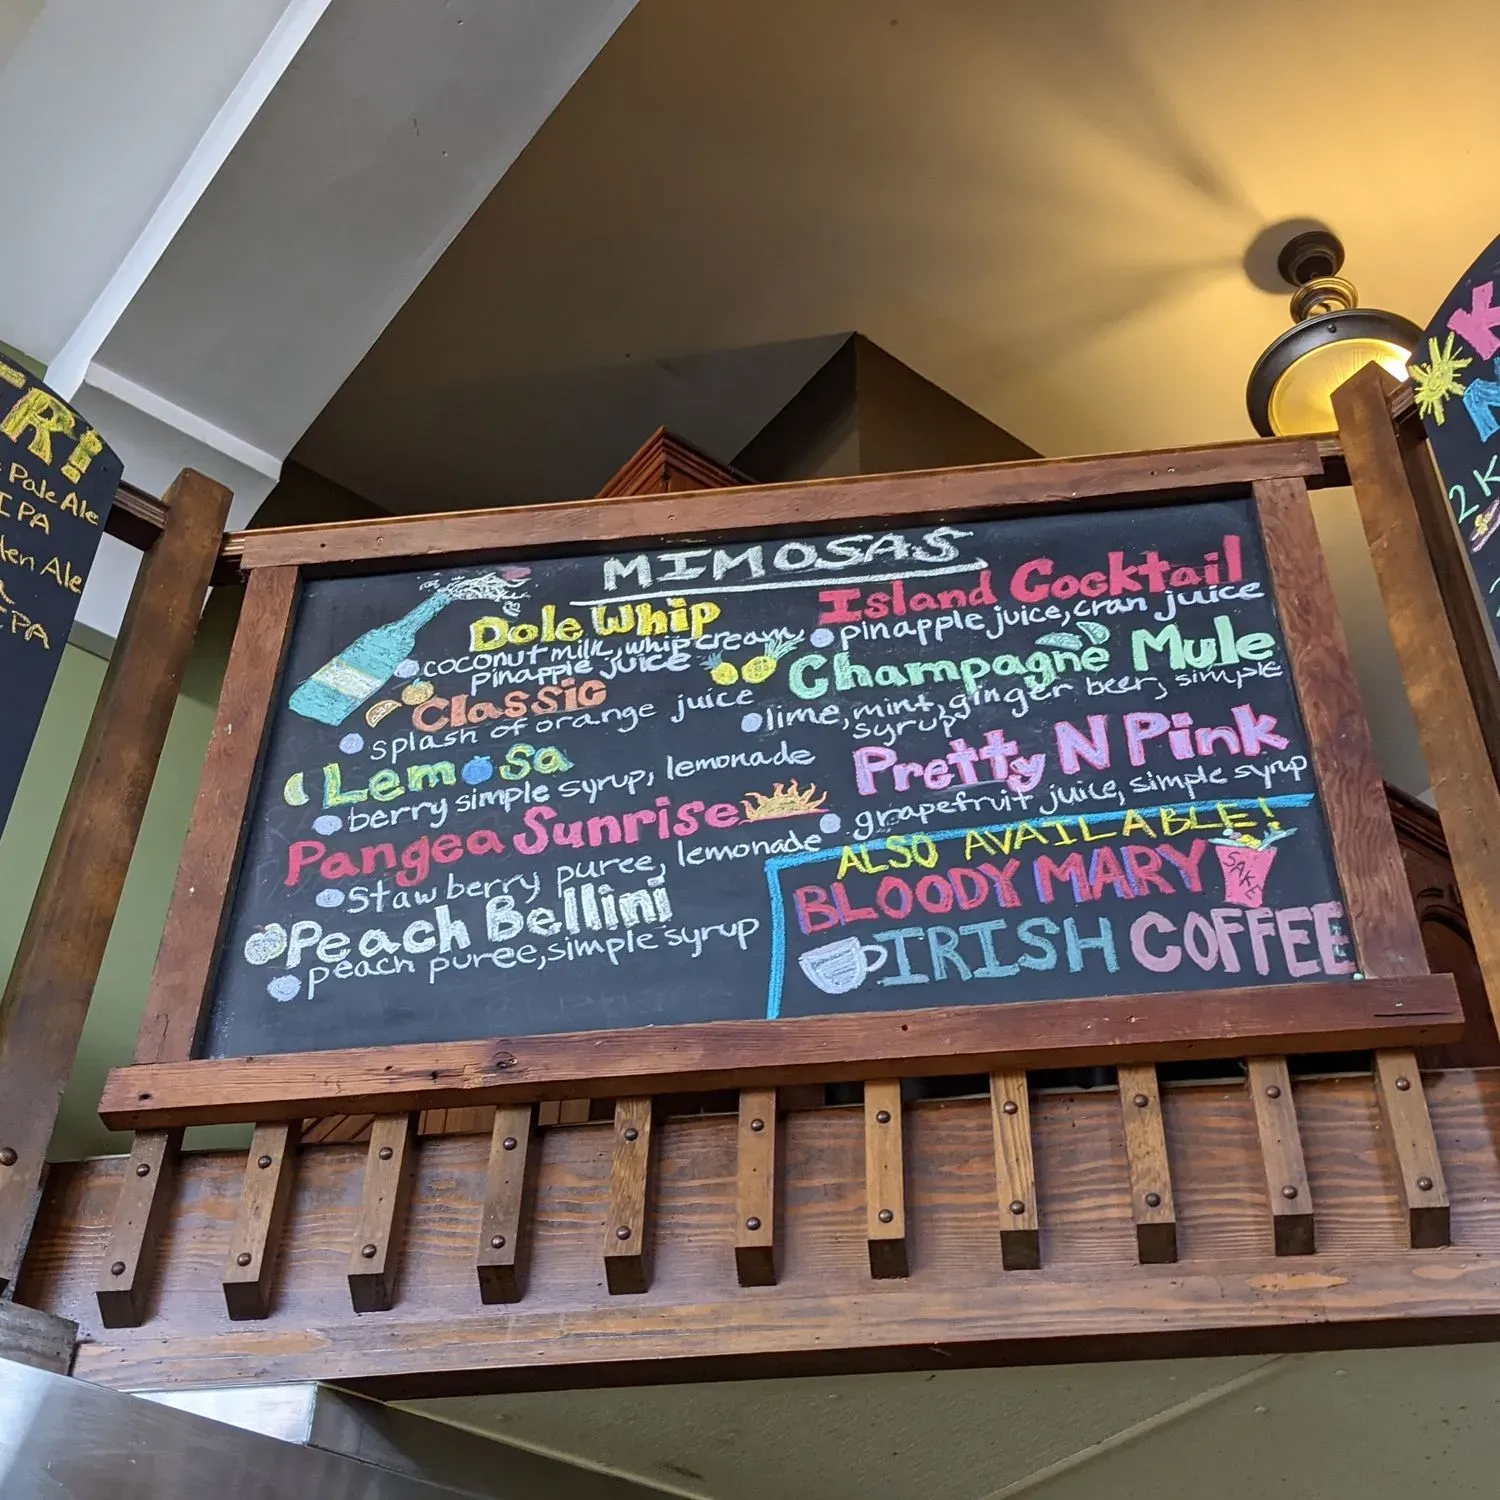 TR!
Pale Ale
IPA
den Ale
CPA
MIMOSAS
Dole Whip
coconut milk, whip cream,
pineapple juice
Classic
splash of orange juice
Lemosa
berry simple syrup, lemonade
Pangea Sunrise
staw berry puree, lemonade
Peach Bellini
peach puree, simple syrup
Island Cocktail
pinapple juice, cran juice
Champagne Mule
lime, mint, ginger beer, simple
syrup
Pretty N Pink
grapefruit juice, simple syrup
ALSO AVAILABLE!
BLOODY MARY
SAKE
IRISH COFFEE
K
2 K